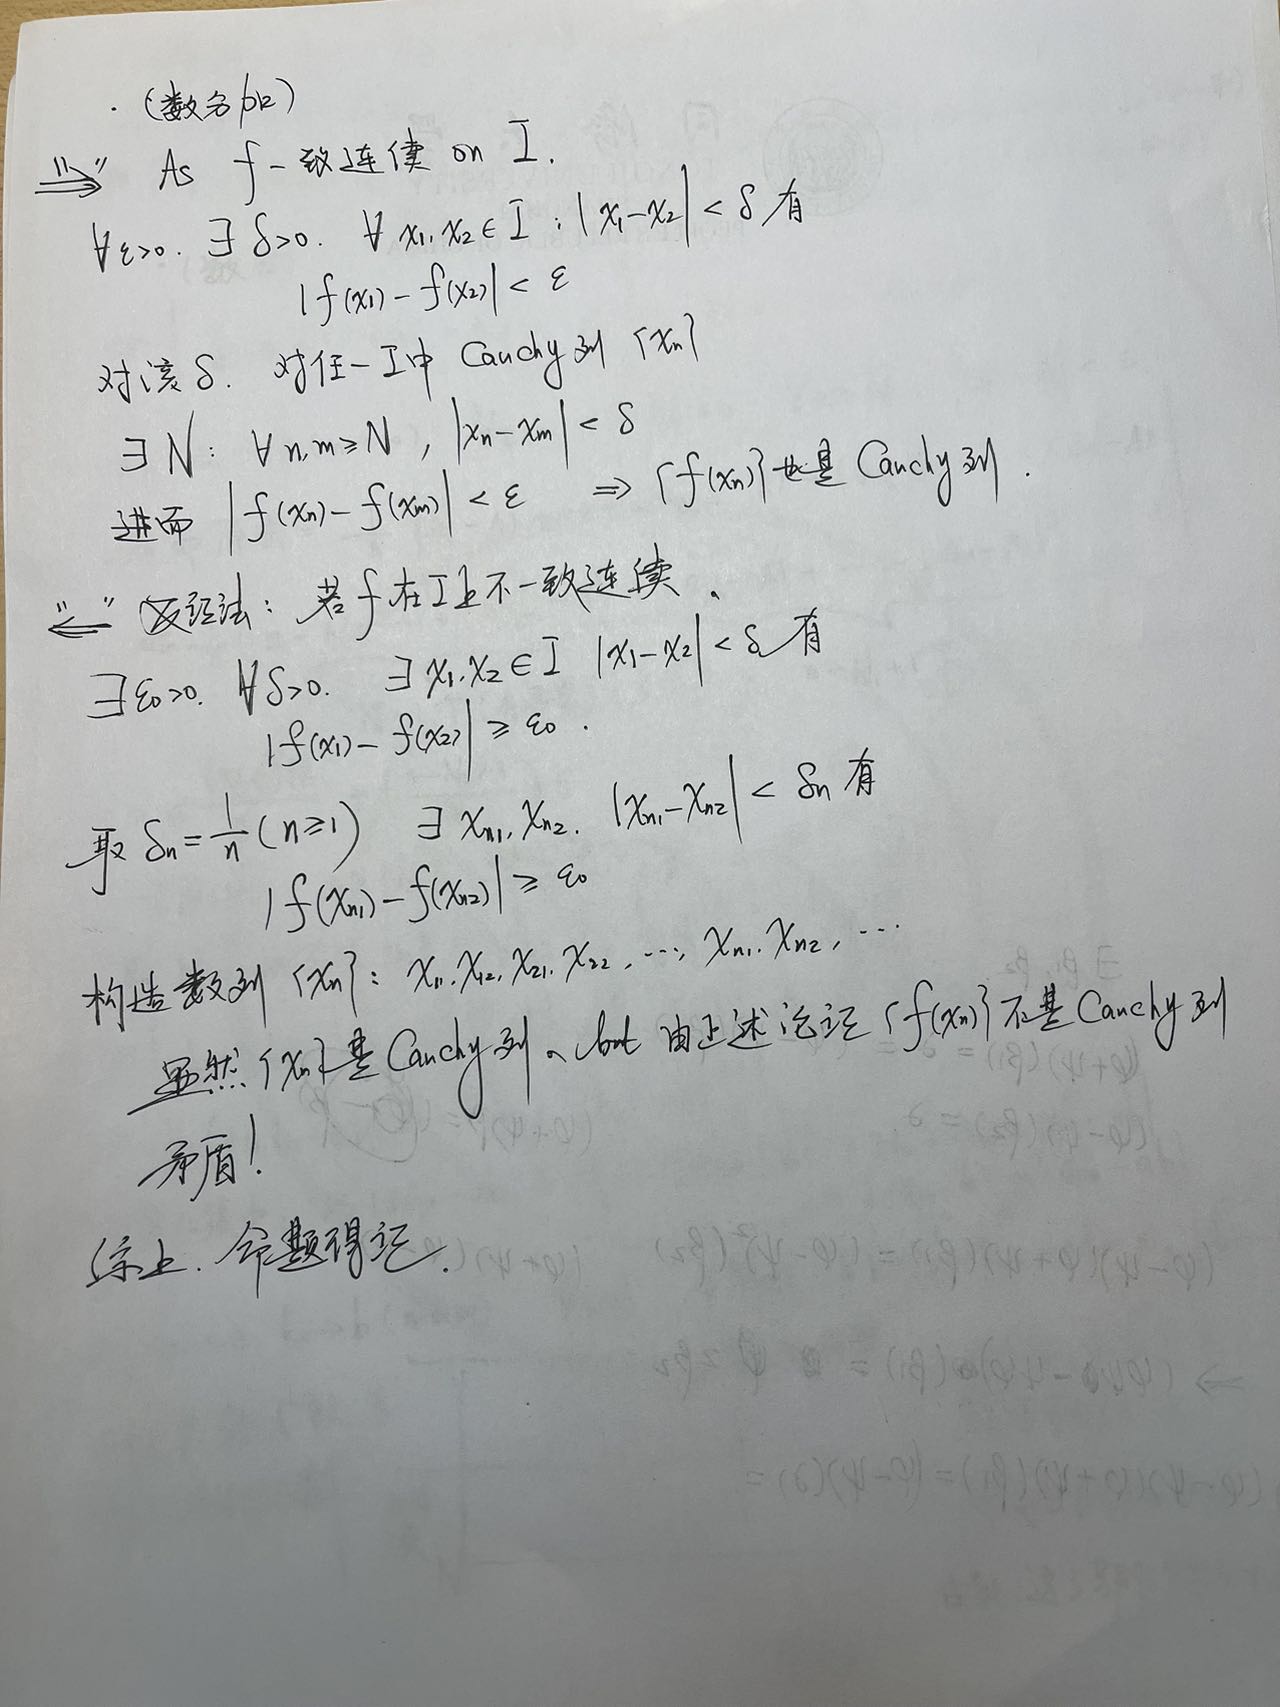 · (数分 )
"⇒" As f一致连续 on I.
∀ε>0. ∃δ>0. ∀x₁,x₂∈I : |x₁-x₂|<δ 有
|f(x₁)-f(x₂)|<ε
对该δ. 对任一I中 Cauchy列 {xₙ}
∃N: ∀n,m≥N, |xₙ-xₘ|<δ
进而 |f(xₙ)-f(xₘ)|<ε ⇒ {f(xₙ)}也是 Cauchy列.
"⇐" 反证法: 若f在I上不一致连续.
∃ε₀>0. ∀δ>0. ∃x₁,x₂∈I |x₁-x₂|<δ 有
|f(x₁)-f(x₂)|≥ε₀.
取 δₙ=1/n (n≥1) ∃xₙ₁,xₙ₂. |xₙ₁-xₙ₂|<δₙ 有
|f(xₙ₁)-f(xₙ₂)|≥ε₀
构造数列{xₙ}: x₁₁,x₁₂,x₂₁,x₂₂,…,xₙ₁,xₙ₂,…
显然{xₙ}是Cauchy列, but 由上述论证{f(xₙ)}不是Cauchy列
矛盾!
综上. 命题得证.